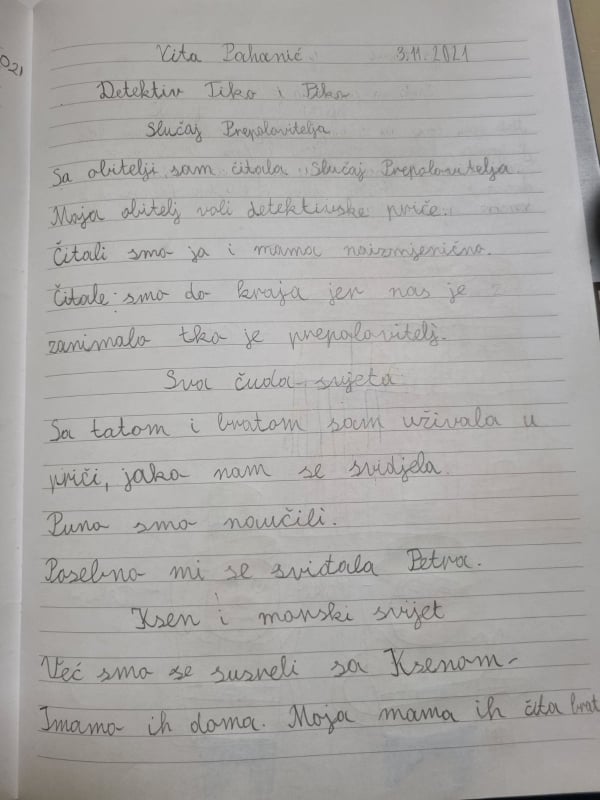 021
Vita Pahanić 3.11.2021
Detektiv Tiko i Piko
Slučaj Prepolovitelja
Sa obitelji sam čitala „Slučaj Prepolovitelja.
Moja obitelj voli detektivske priče.
Čitali smo ja i mama naizmjenično.
Čitale smo do kraja jer nas je
zanimalo tko je prepolovitelj.
Sva čuda svijeta
Sa tatom i bratom sam uživala u
priči, jako nam se svidjela.
Puno smo naučili.
Posebno mi se sviđala Petra.
Ksen i morski svijet
Već smo se susreli sa Ksenom-
Imamo ih doma. Moja mama ih čita brat